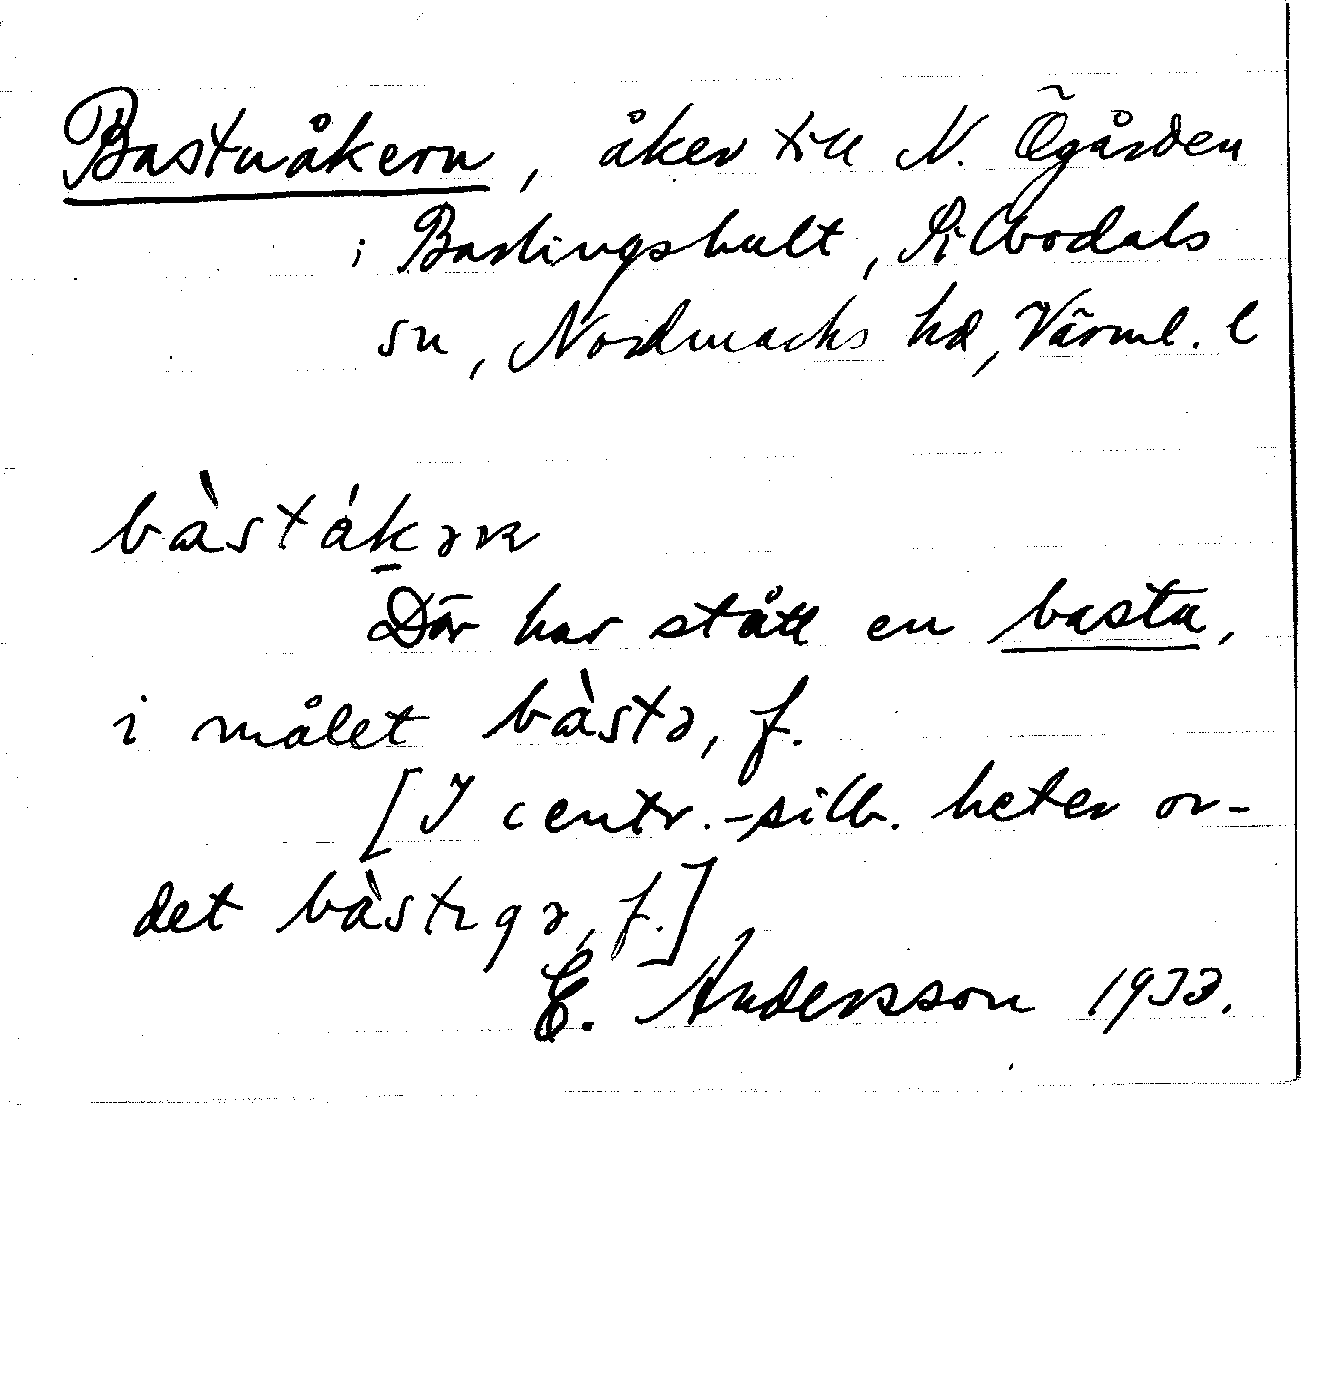 Bastuåkern, åker till N. Ögården
i Bastingshult, Silbodals
sn, Nordmarks hd, Värml. l
bàstákəɴ
Där har stått en bastu,
i målet bàstə, f.
[I centr.-silb. heter or-
det bàstıgə, f.]
E. Andersson 1933.